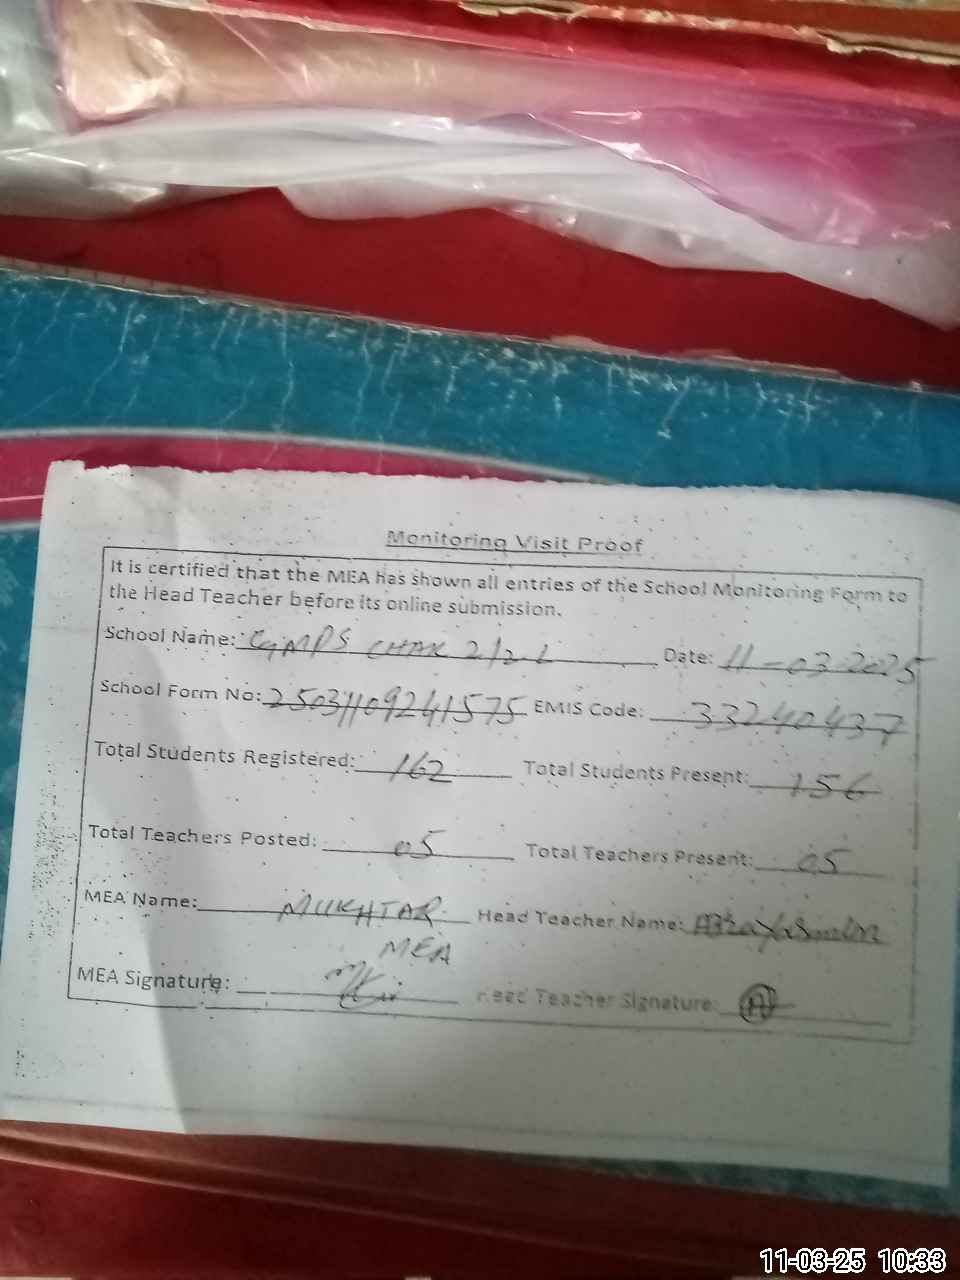 Monitoring Visit Proof
It is certified that the MEA has shown all entries of the School Monitoring Form to
the Head Teacher before its online submission.
School Name: GMPS CHAK 2/2 L Date: 11-03-2025
School Form No: 25031109241575 EMIS Code: 33240437
Total Students Registered: 162 Total Students Present: 156
Total Teachers Posted: 05 Total Teachers Present: 05
MEA Name: MUKHTAR Head Teacher Name:
MEA
MEA Signature: Head Teacher Signature:
11-03-25 10:33